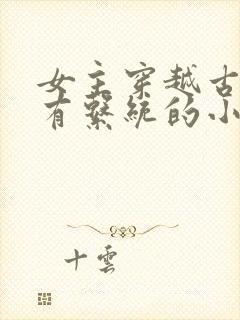 女主穿越古
有繫統的小
十雲